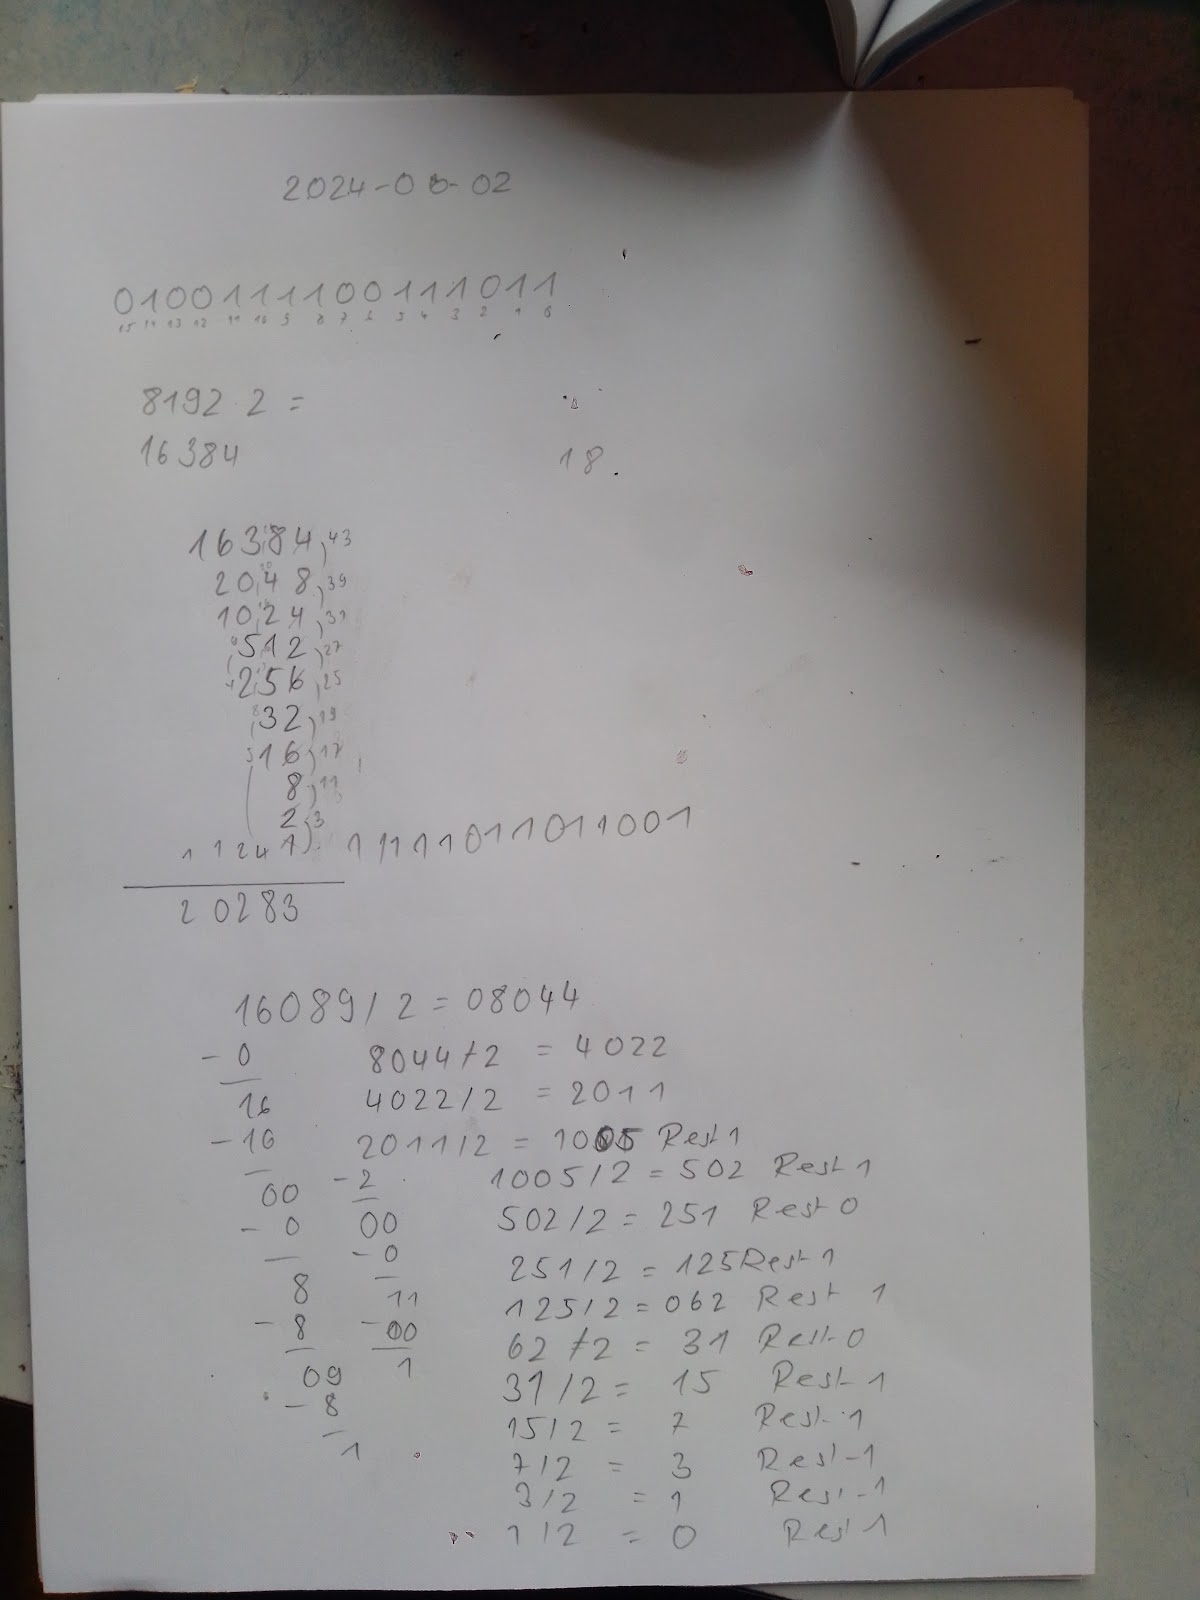 2024-06-02
0100111100111011
15 14 13 12 11 10 9 8 7 6 5 4 3 2 1 0
8192 2 =
16384
18.
16384 43
2048 39
1024 31
512 27
256 25
32 19
16 17
8 11
2 3
1 1 2 4 1 11111011011001
20283
16089 / 2 = 08044
- 0 8044 / 2 = 4022
16 4022 / 2 = 2011
- 16 2011 / 2 = 1005 Rest 1
00 - 2 1005 / 2 = 502 Rest 1
- 0 00 502 / 2 = 251 Rest 0
- 0 251 / 2 = 125 Rest 1
8 11 125 / 2 = 062 Rest 1
- 8 - 00 62 / 2 = 31 Rest 0
09 1 31 / 2 = 15 Rest 1
- 8 15 / 2 = 7 Rest 1
1 7 / 2 = 3 Rest 1
3 / 2 = 1 Rest 1
1 / 2 = 0 Rest 1